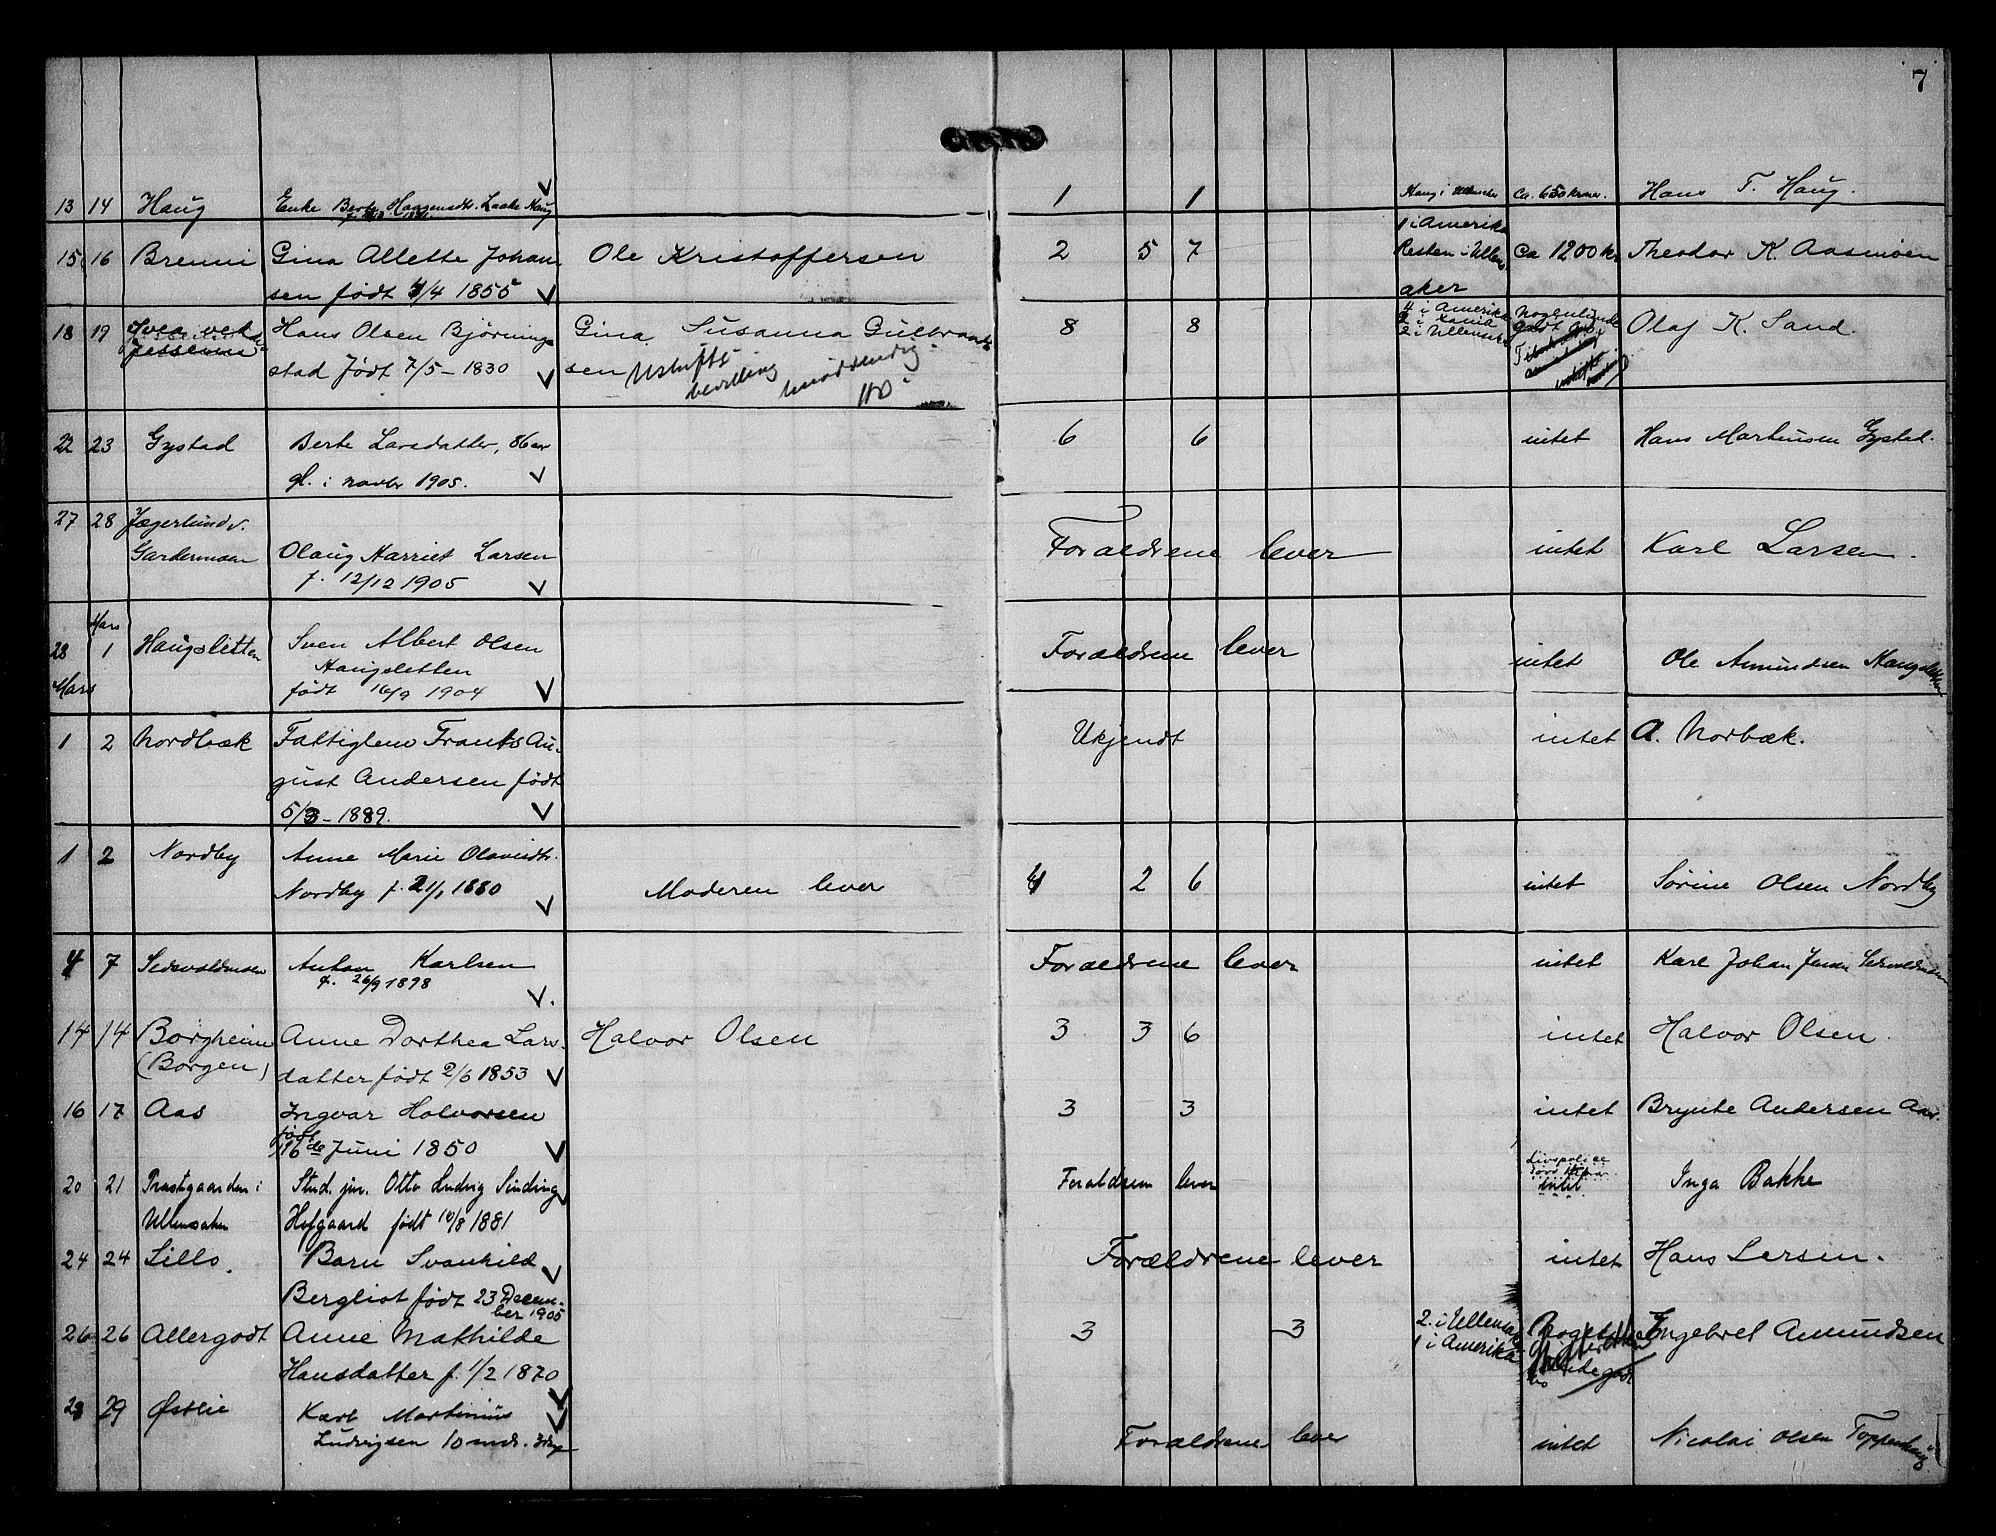 7
13 14 Haug Enke Berte Haagensdtr. Laake Haug 1 1 Haug i Ullensaker Ca. 650 kroner. Hans T. Haug.
1 i Amerika
15 16 Brenni Gina Allette Johan Ole Kristoffersen 2 5 7 Resten i Ullens Ca 1200 kr Theodor K. Aasmoen
sen født 4/4 1855 aker
18 19 Hans Olsen Bjørning Gina Susanna Gulbrand 8 8 4 i Amerika Nogenlunde Olaf K. Sand.
Jessenni 2 i Ullensaker godt
stad Født 7/5 - 1830 sen Uskifte
bevilling unødvendig
22 23 Gystad Berte Larsdatter, 86 aar 6 6 intet Hans Martinsen Gystad.
gl. i novbr 1905.
27 28 Jægerlund v.
Gardermoen Olaug Harriet Larsen Forældrene lever intet Karl Larsen.
f. 12/12 1905
Mars
28 1 Haugsletten Sven Albert Olsen Forældrene lever intet Ole Amundsen Haugsletten
Haugsletten
Mars født 16/9 1904
1 2 Nordbæk Fattiglem Frants Au- Ukjendt intet A. Norbæk.
gust Andersen født
5/3 - 1889.
1 2 Nordby Anne Marie Olavesdtr.
Nordby f. 21/1 1880 Moderen lever 4 2 6 intet Sørine Olsen Nordby
4 7 Anton Karlsen Forældrene lever intet Karl Johan Jensen
f. 26/9 1898
14 14 Borgheim Anne Dorthea Lars- Halvor Olsen 3 3 6 intet Halvor Olsen
(Borgen) datter født 2/6 1853
16 17 Aas Ingvar Halvorsen 3 3 intet Brynte Andersen Aas.
født
16de Juni 1850
20 21 Præstgaarden i Stud. jur. Otto Ludvig Sinding Forældrene lever Livspolice intet Inga Bakke
Ullensaker Hofgaard født 10/8 1881
24 24 Lillo. Barn Svanhild Forældrene lever intet Hans Larsen.
Bergliot født 23 Decem-
ber 1905
26 26 Allergodt Anne Mathilde 3 3 2 i Ullensaker Engebret Amundsen
1 i Amerika
Hansdatter f. 1/2 1870
28 29 Østlie Karl Martinius Forældrene lever intet Nicolai Olsen Toppenhaug
Ludvigsen 10 mdr.